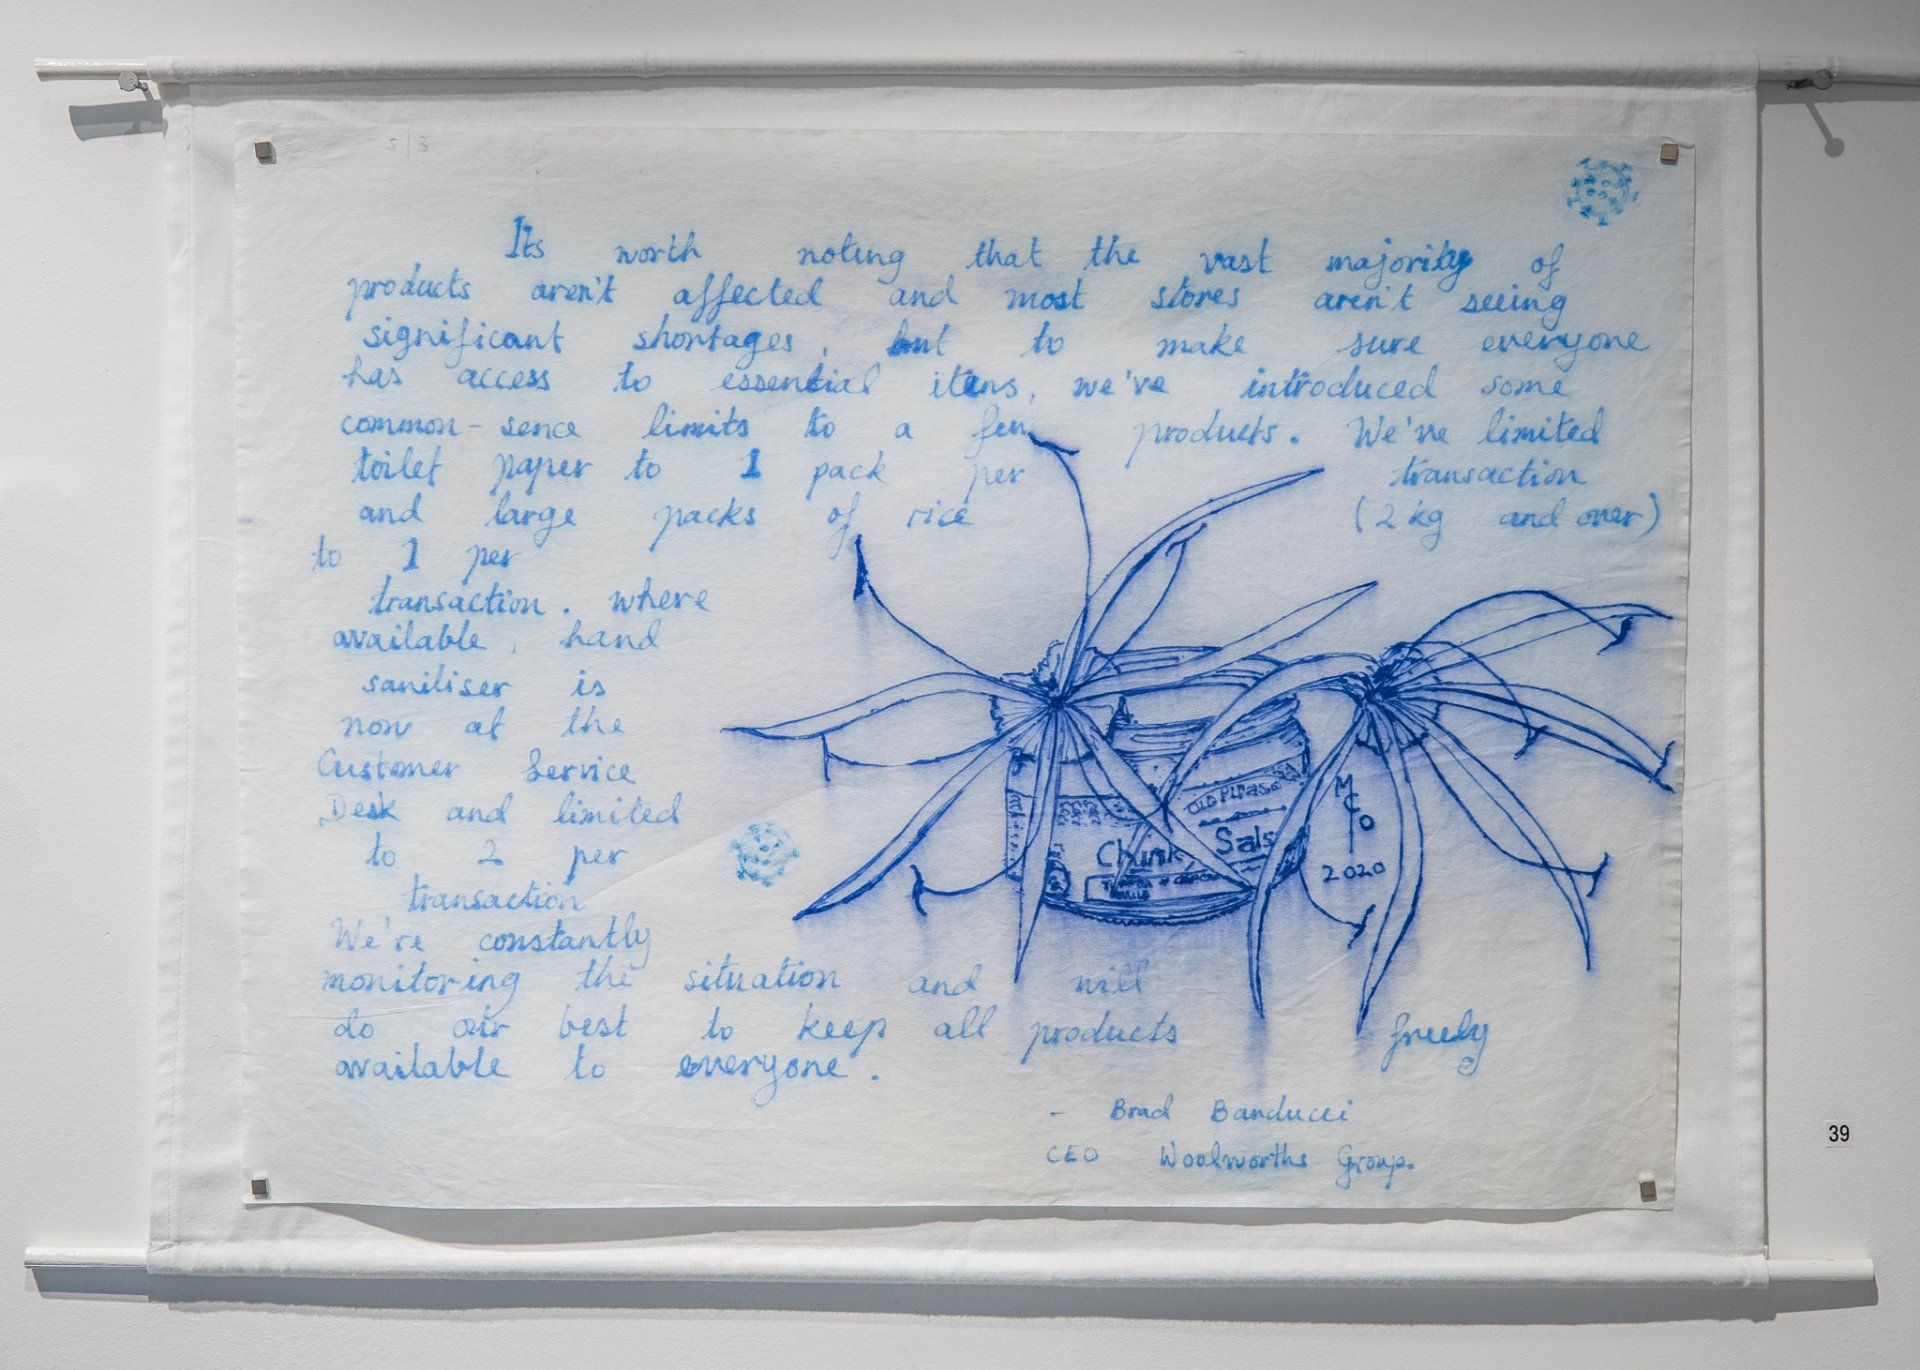 Its worth noting that the vast majority of
products aren't affected and most stores aren't seeing
significant shortages, but to make sure everyone
has access to essential items, we've introduced some
common-sence limits to a few products. We've limited
toilet paper to 1 pack per transaction
and large packs of rice (2 kg and over)
to 1 per
transaction. where
available, hand
saniliser is
now at the
Customer Service
Desk and limited
to 2 per
transaction
We're constantly
monitoring the situation and will
do our best to keep all products freely
available to everyone.
- Brad Banducci
CEO Woolworths Group.
OLD
Sals
Chunk
MCO
2020
39